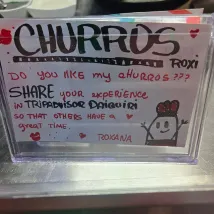 CHURROS
ROXi
DO YOU liKE my CHURROS ???
SHARE YOUR EXPERIENCE
IN TRIPADVISOR DAIQUIRI
SO THAT OTHERS HAVE a
great TIME.
ROXANA